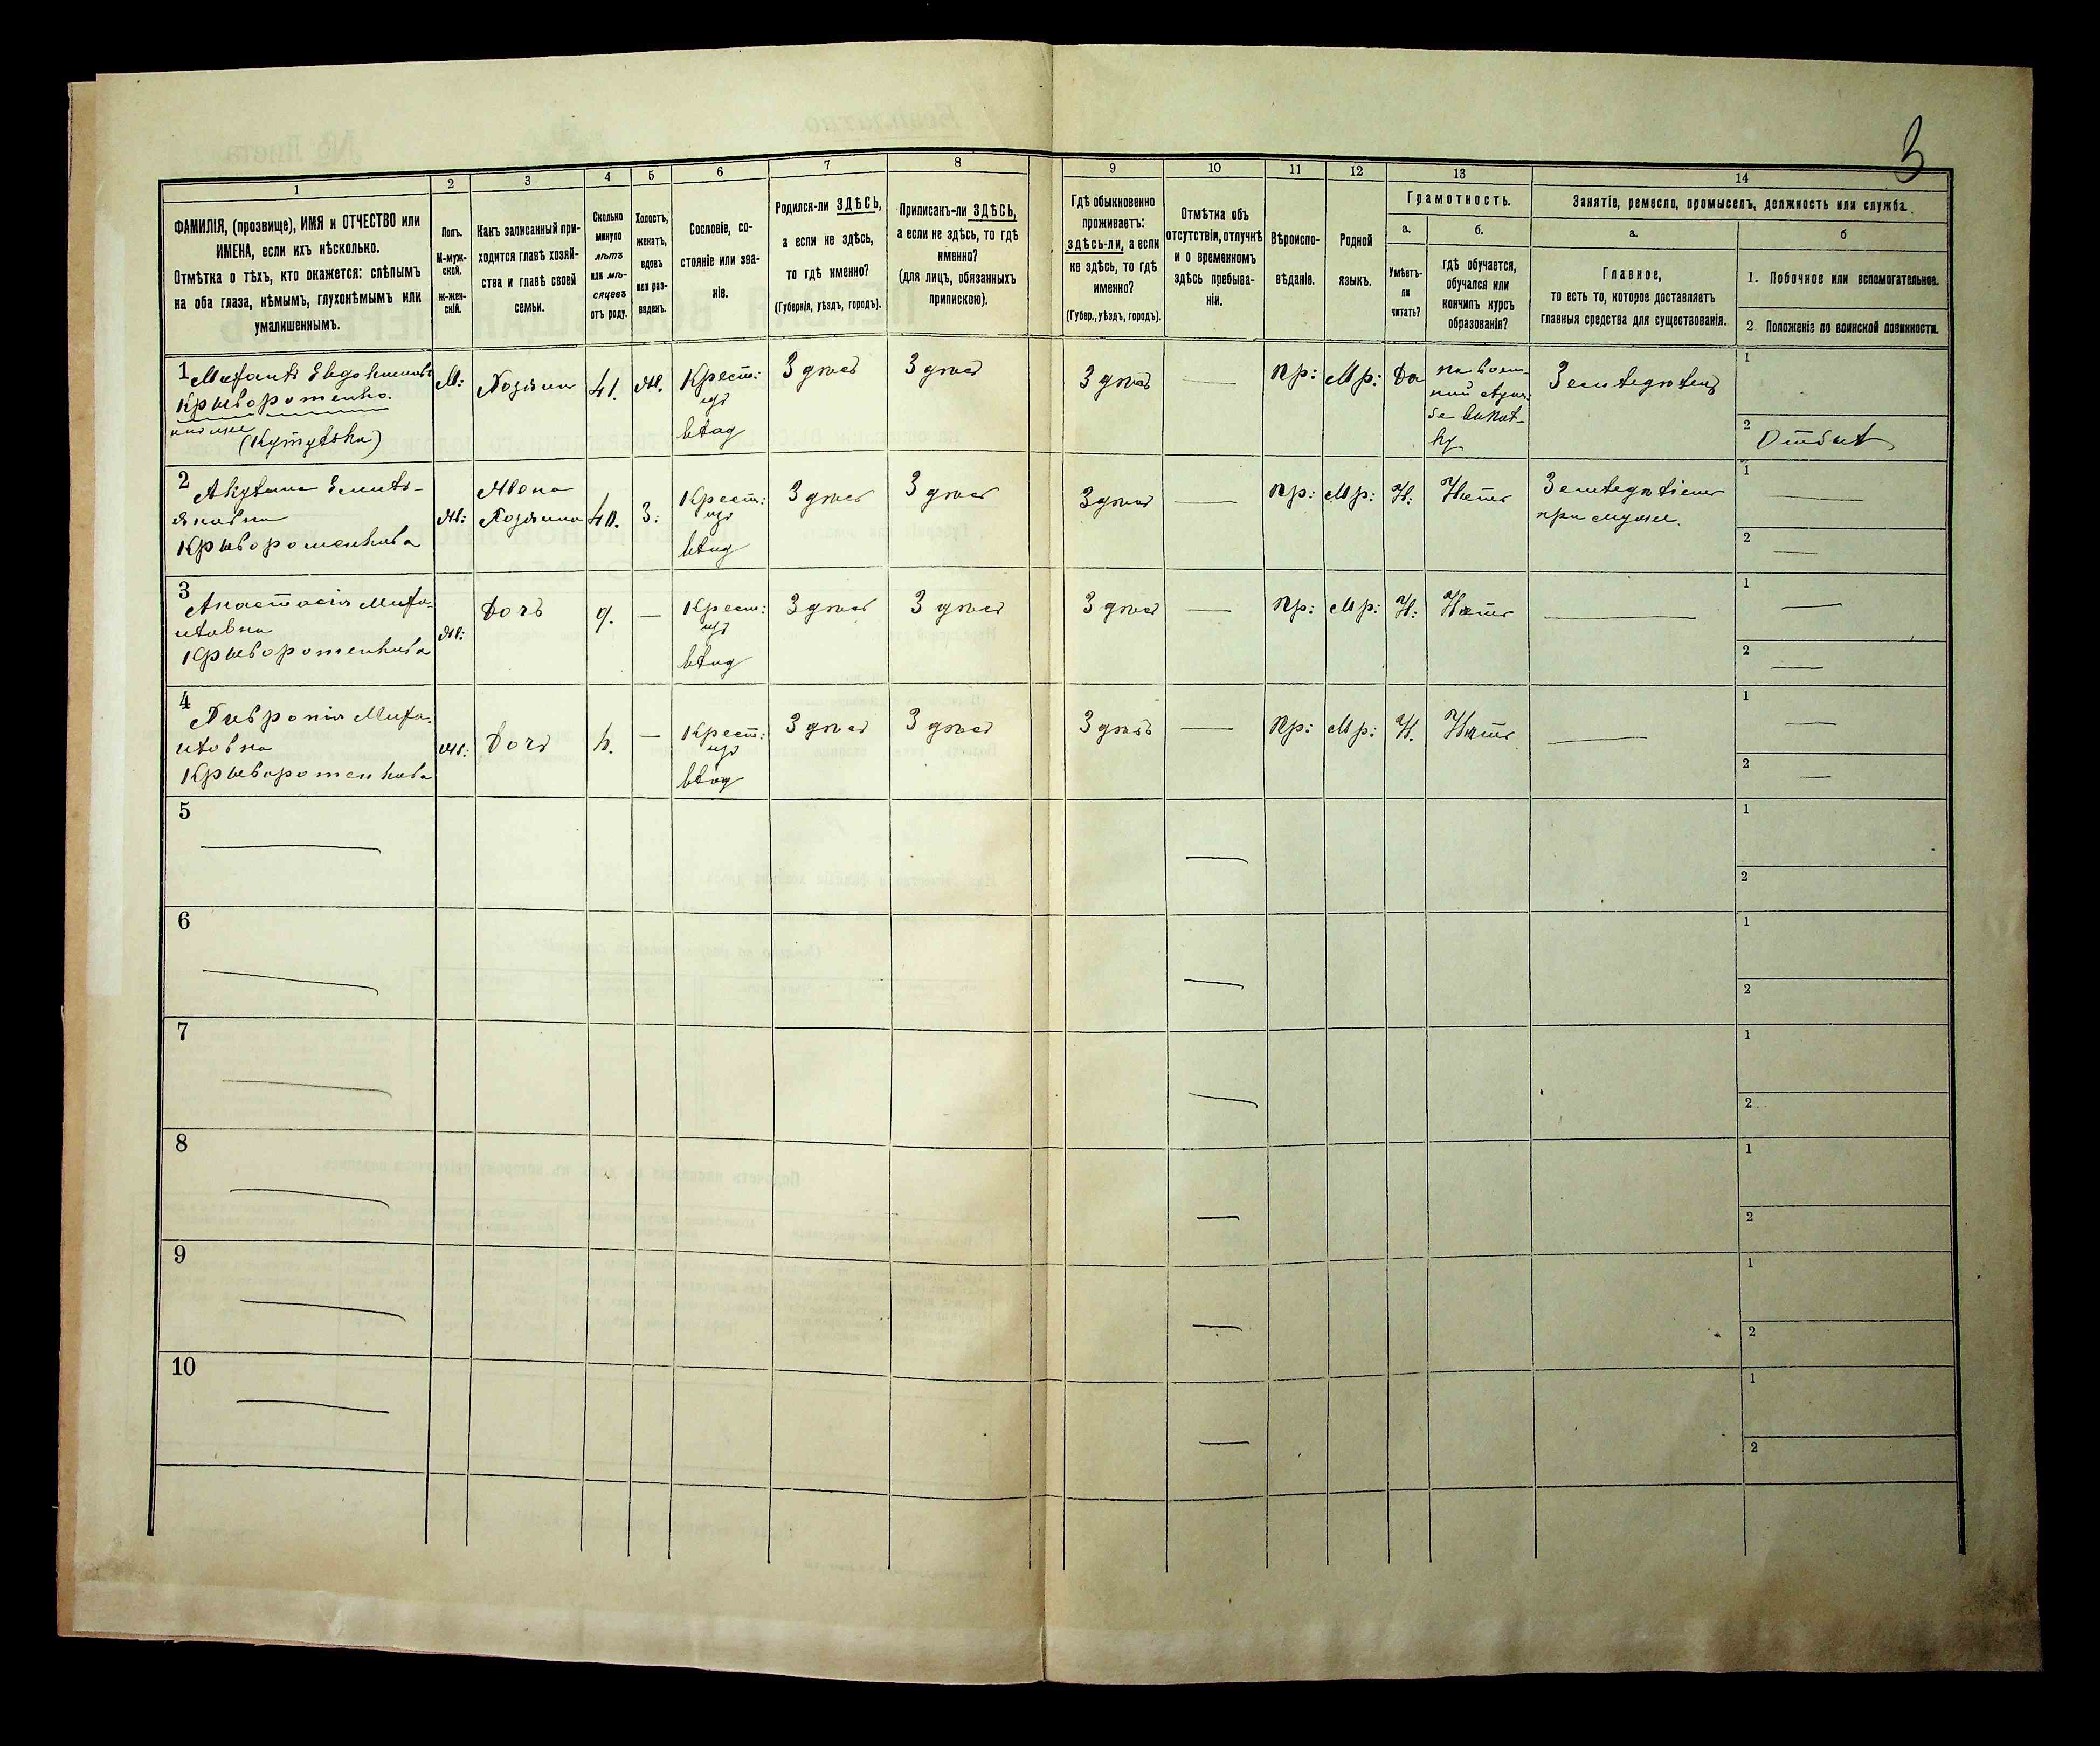 3
1
2
3
4
5
6
7
8
9
10
11
12
13
14
ФАМИЛІЯ, (прозвище), ИМЯ и ОТЧЕСТВО или
ИМЕНА, если ихъ нѣсколько.
Отмѣтка о тѣхъ, кто окажется: слѣпымъ
на оба глаза, нѣмымъ, глухонѣмымъ или
умалишеннымъ.
Полъ.
М-муж-
ской.
Ж-жен-
скій.
Какъ записанный при-
ходится главѣ хозяй-
ства и главѣ своей
семьи.
Сколько
минуло
лѣтъ
или мѣ-
сяцевъ
отъ роду.
Холостъ,
женатъ,
вдовъ
или раз-
веденъ.
Сословіе, со-
стояніе или зва-
ніе.
Родился-ли ЗДѢСЬ,
а если не здѣсь,
то гдѣ именно?
(Губернія, уѣздъ, городъ).
Приписанъ-ли ЗДѢСЬ,
а если не здѣсь, то гдѣ
именно?
(для лицъ, обязанныхъ
припискою).
Гдѣ обыкновенно
проживаетъ:
здѣсь-ли, а если
не здѣсь, то гдѣ
именно?
(Губер., уѣздъ, городъ).
Отмѣтка объ
отсутствіи, отлучкѣ
и о временномъ
здѣсь пребыва-
ніи.
Вѣроиспо-
вѣданіе.
Родной
языкъ.
Грамотность.
а.
Умѣетъ-
ли
читать?
б.
гдѣ обучается,
обучался или
кончилъ курсъ
образованія?
Занятіе, ремесло, промыселъ, должность или служба.
а.
Главное,
то есть то, которое доставляетъ
главныя средства для существованія.
б
1. Побочное или вспомогательное.
2 Положеніе по воинской повинности.
1
Криворотенко.
М:
Хозяинъ
41.
Ж.
Крест:
изъ
влад
Здѣсь
Здѣсь
Здѣсь
Пр:
Мр:
Да
на воен-
ной служ-
бе
Земледѣлецъ
1
2
Отбыл
2
Криворотенкова
Ж:
Жена
Хозяина
40.
З:
Крест:
изъ
влад
Здѣсь
Здѣсь
Здѣсь
Пр:
Мр:
Н:
Нѣтъ
при мужѣ.
1
2
3
Анастасія
Криворотенкова
Ж:
Дочь
9.
Крест:
изъ
влад
Здѣсь
Здѣсь
Здѣсь
Пр:
Мр:
Н:
Нѣтъ
1
2
4
Хивронія
Криворотенкова
Ж:
Дочь
Крест:
изъ
влад
Здѣсь
Здѣсь
Здѣсь
Пр:
Мр:
Н.
Нѣтъ
1
2
5
1
2
6
1
2
7
1
2
8
1
2
9
1
2
10
1
2